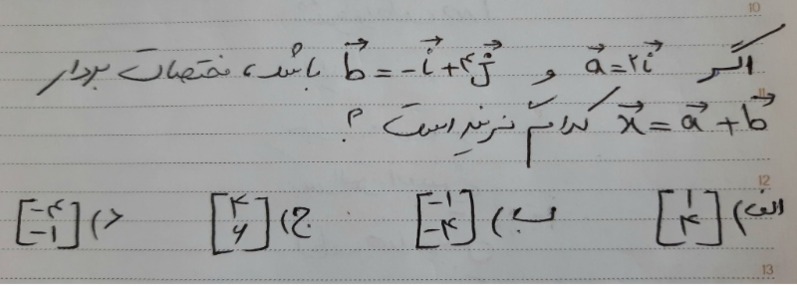 10
اگر a⃗=۲i⃗ و b⃗=-i⃗+۴j⃗ باشد، مختصات بردار
x⃗=a⃗+b⃗ کدام گزینه است ؟
12
الف) [۱ ۴] ب) [-۱ -۴] ج) [۲ ۶] د) [-۴ -۱]
13